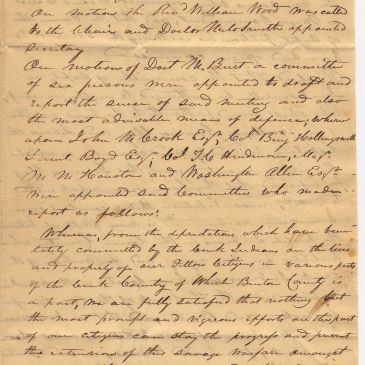 On motion the Revd William Wood was called
to the Chair and Doctor Smith appointed
Secretary
On motion of Doct M. Burt a committee
of six persons were appointed to draft and
report the sense of said meeting and also
the most advisable means of defence, where
upon John M Crook Esqr, Col Benj Hollingsworth
Lieut. Boyd Esqr, Col T. C Hindman, Majr
M. M Houston and Washington Allen Esqr
were appointed said Committee who made
report as follows:
Whereas, from the depredations which have been
lately committed by the Creek Indians on the lives
and property of our fellow Citizens in various parts
of the Creek Country of Which Benton County is
a part, we are fully satisfied that nothing but
the most prompt and vigorous efforts on the part
of our citizens can stay the progress and prevent
the extension of this savage warfare amongst